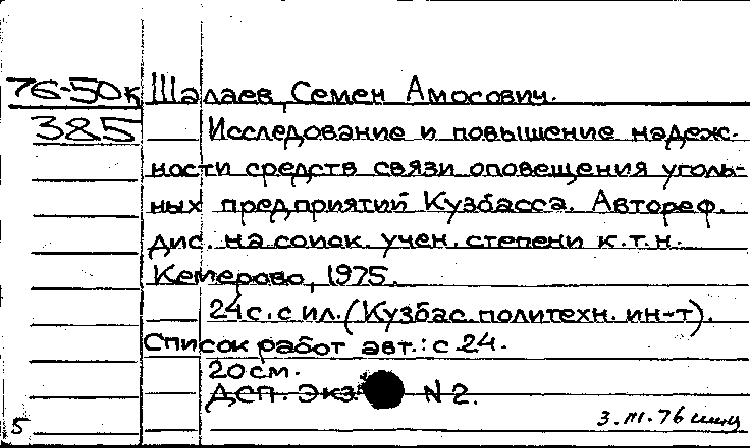 76-50к Шалаев, Семен Амосович.
385 Исследование и повышение надеж-
ности средств связи оповещения уголь-
ных предприятий Кузбасса. Автореф.
дис. на соиск. учен. степени к.т.н.
Кемерово, 1975.
24 с. с ил. (Кузбас. политехн. ин-т).
Список работ авт.: с 24.
20 см.
ДСП. Экз. N 2.
5 3.III.76